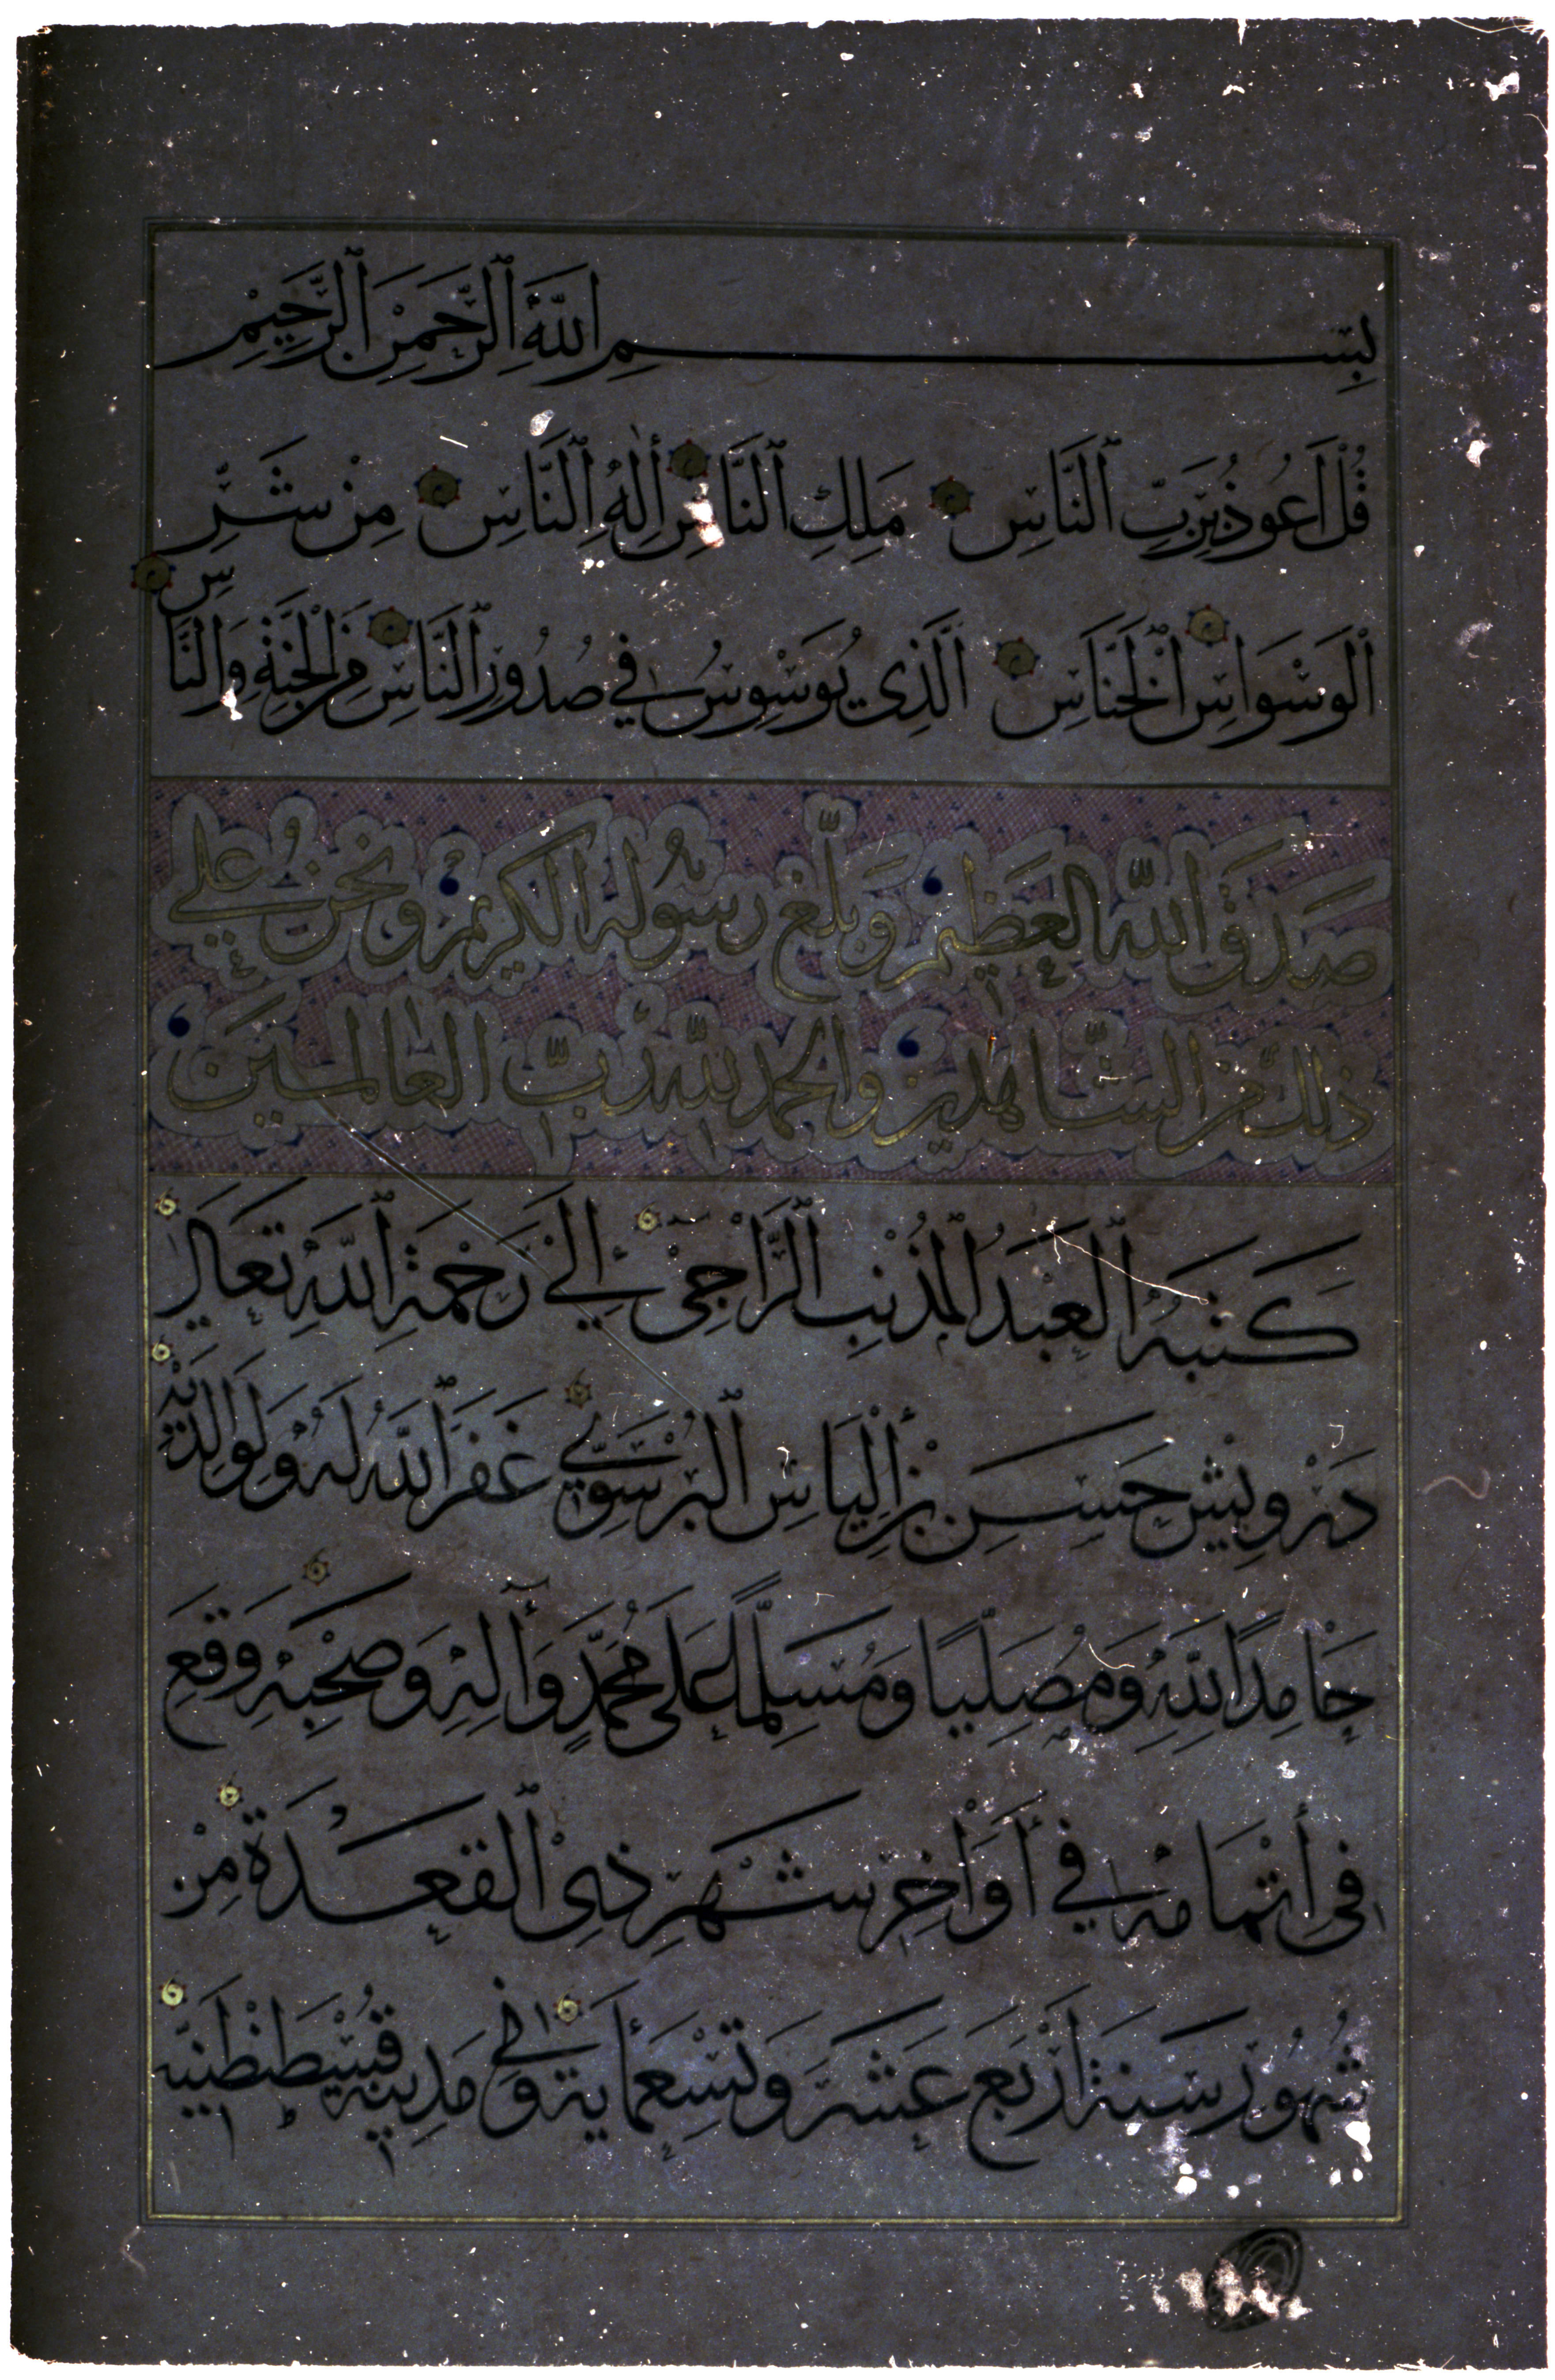 بِسْمِ اللَّهِ الرَّحْمَنِ الرَّحِيمِ
قُلْ أَعُوذُ بِرَبِّ النَّاسِ مَلِكِ النَّاسِ إِلَٰهِ النَّاسِ مِنْ شَرِّ
الْوَسْوَاسِ الْخَنَّاسِ الَّذِي يُوَسْوِسُ فِي صُدُورِ النَّاسِ مِنَ الْجِنَّةِ وَالنَّاسِ
صَدَقَ اللّٰه العَظِيم وَبلّغ رسُوله الكريم ونحنُ على
ذلك من الشّاهدين والحمد للّٰه ربّ العالمينَ
كَتَبَهُ الْعَبْدُ الْمُذْنِبُ الرَّاجِي إِلَى رَحْمَةِ اللَّهِ تَعَالَى
دَرْوِيشْ حَسَنِ بْنِ إِلْيَاسِ الْبُرُسَوِيّ غَفَرَ اللَّهُ لَهُ وَلِوَالِدَيْهِ
حَامِدًا لِلَّهِ وَمُصَلِّيًا وَمُسَلِّمًا عَلَى مُحَمَّدٍ وَآلِهِ وَصَحْبِهِ وَقَعَ
فِي أتْمَامه فِي أَوَاخِرِ شَهْرِ ذِي الْقَعْدَة مِنْ
شُهُورِ سَنَة أَرْبَع عَشَرَ وَتِسْعمَأية وَفِي مَدِينَة قُسْطَنْطِنِيَّه